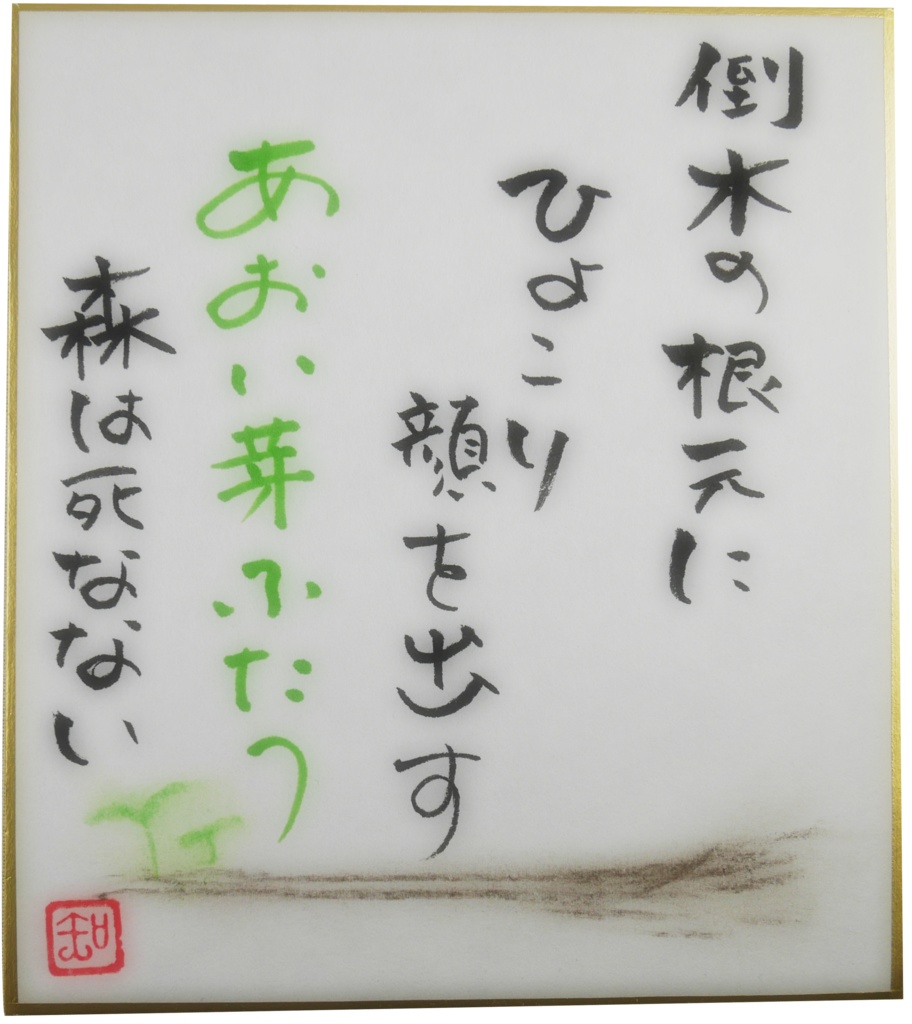 倒木の根元に
ひよこり
顔を出す
あおい芽ふたつ
森は死なない
知